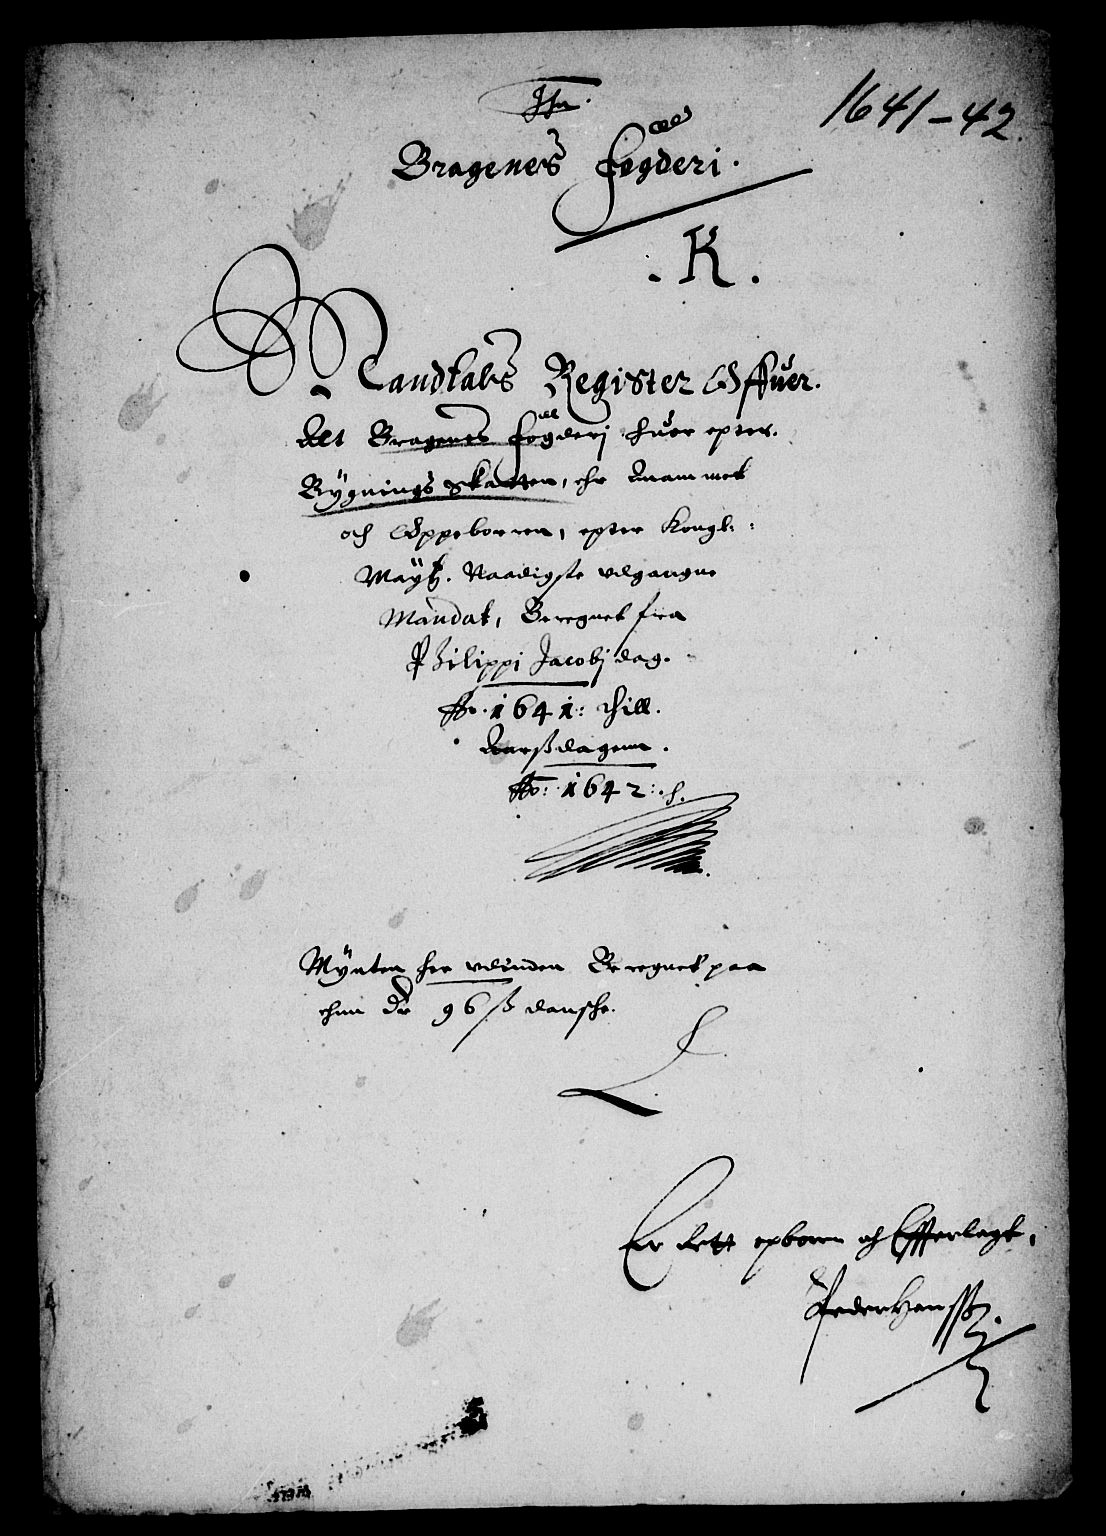 1641-42.
Bragenes fogderi.
. K .
Mandtals Register Offuer.
Alt Bragenes fogderj huor epter.
Bÿgnings skatten, ehr Anammet
och Oppeborren, epter Kongl:
Maÿtz. Naadigste udgangne
Mandat, Beregnet fra
Philippi Jacobj dag.
Ao. 1641: thill.
Aarsdagenn.
Ao: 1642:
Mÿnten her udinden Beregnet paa
ehnn Dr 96 ß danske.
Er Rett opboren och Efferlagt,
Peder Hanssø.